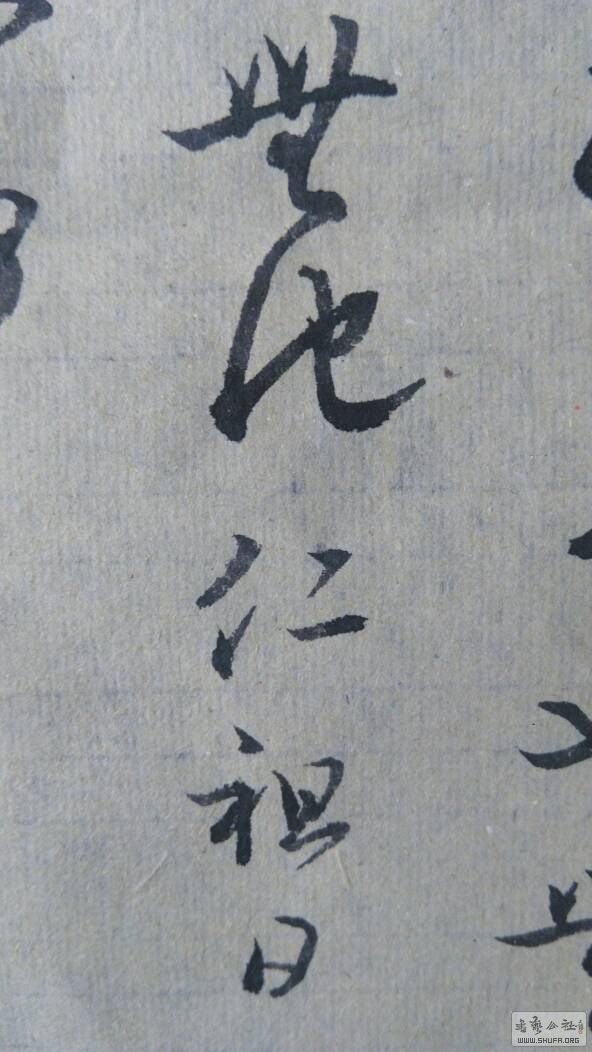 無他仁祖日
書藝公社
WWW.SHUFA.ORG